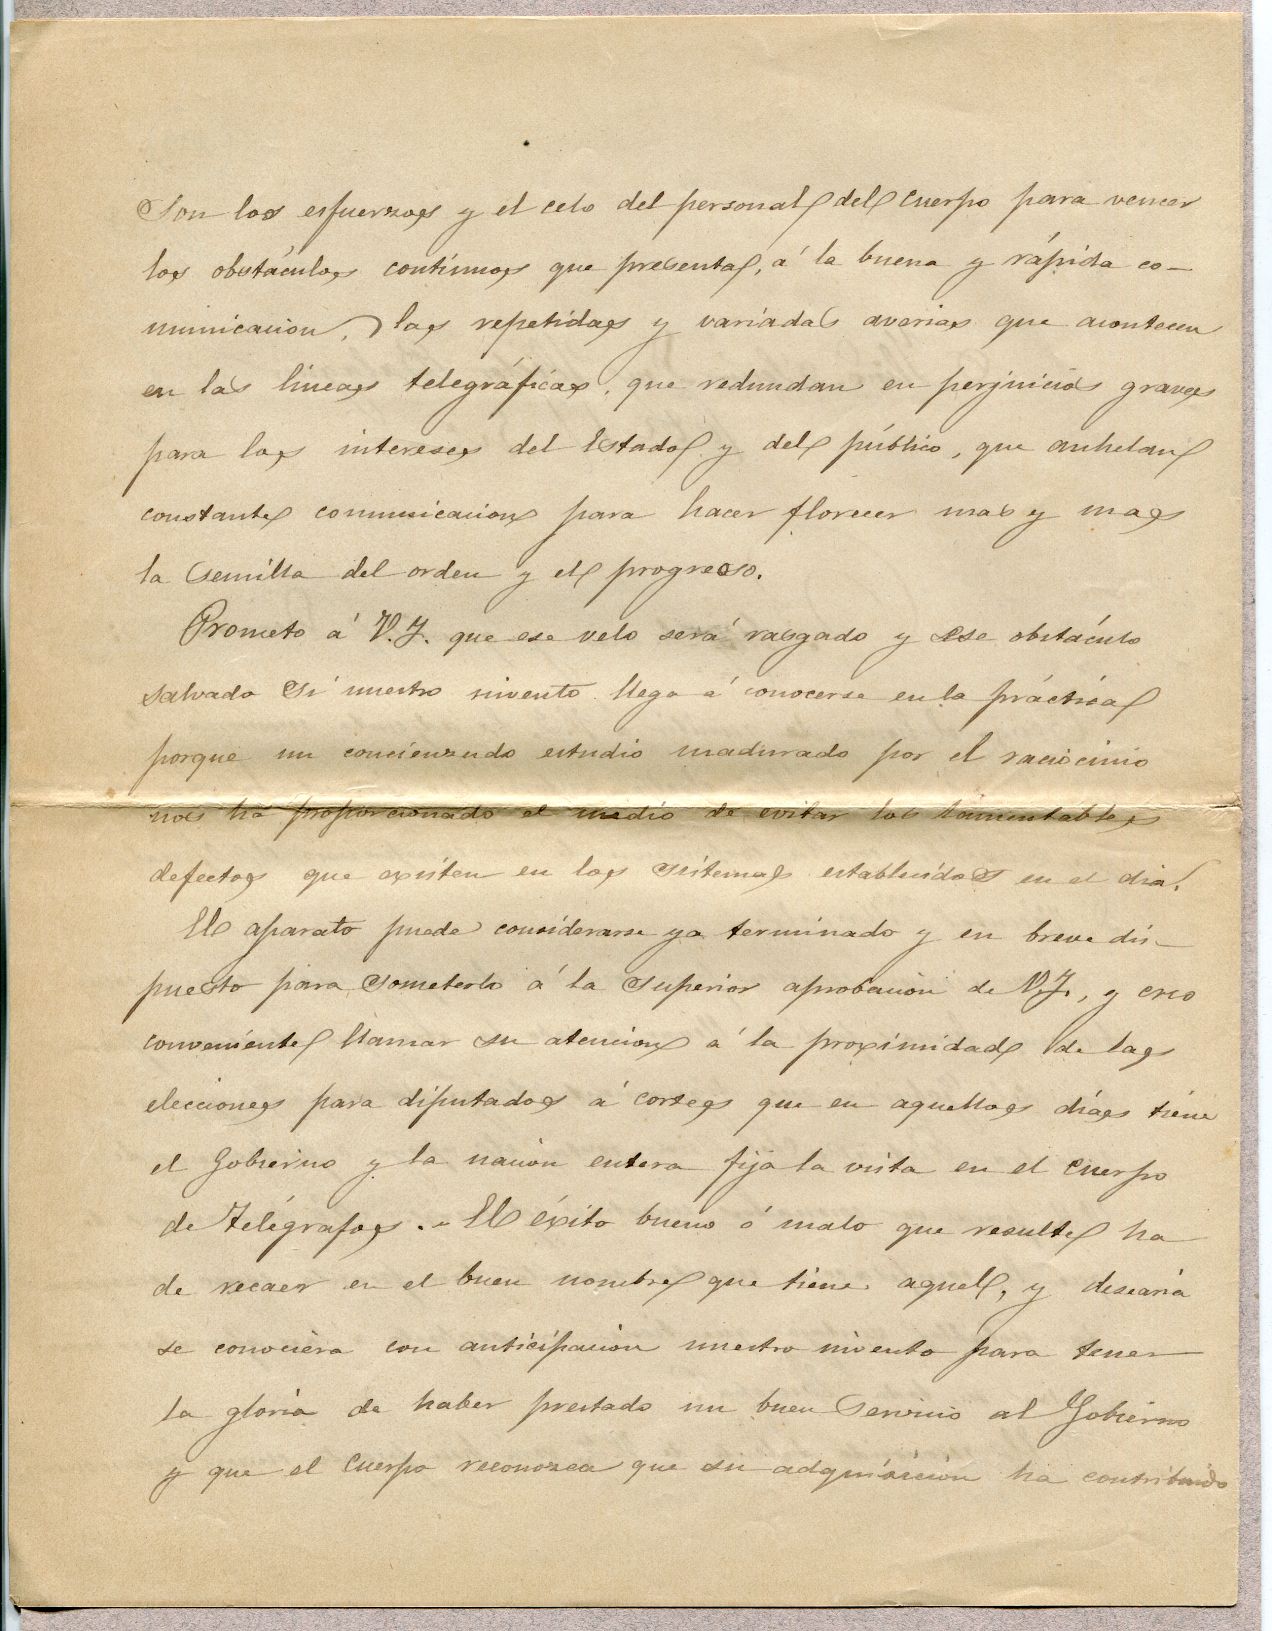 Son los esfuerzos y el celo del personal del Cuerpo para vencer
los obstáculos contínuos que presentan, á la buena y rápida co-
municacion, las repetidas y variadas averias que acontecen
en las líneas telegráficas, que redundan en perjuicios graves
para los intereses del Estado y del público, que anhelan
constante comunicacion para hacer florecer mas y mas
la semilla del orden y el progreso.
Prometo á V.I. que ese velo será rasgado y ese obstáculo
salvado si nuestro invento llega á conocerse en la práctica
porque un concienzudo estudio madurado por el raciocinio
nos ha proporcionado el medio de evitar los lamentables
defectos que existen en los sistemas establecidos en el dia.
El aparato puede considerarse ya terminado y en breve dis-
puesto para someterlo á la superior aprobacion de V.I., y creo
conveniente llamar su atencion á la proximidad de las
elecciones para diputados á cortes que en aquellos días tiene
el Gobierno y la nacion entera fija la vista en el Cuerpo
de Telégrafos. - El éxito bueno ó malo que resulte ha
de recaer en el buen nombre que tiene aquel, y desearia
se conociera con anticipacion nuestro invento para tener
la gloria de haber prestado un buen servicio al Gobierno
y que el Cuerpo reconozca que su adquisicion ha contribuido